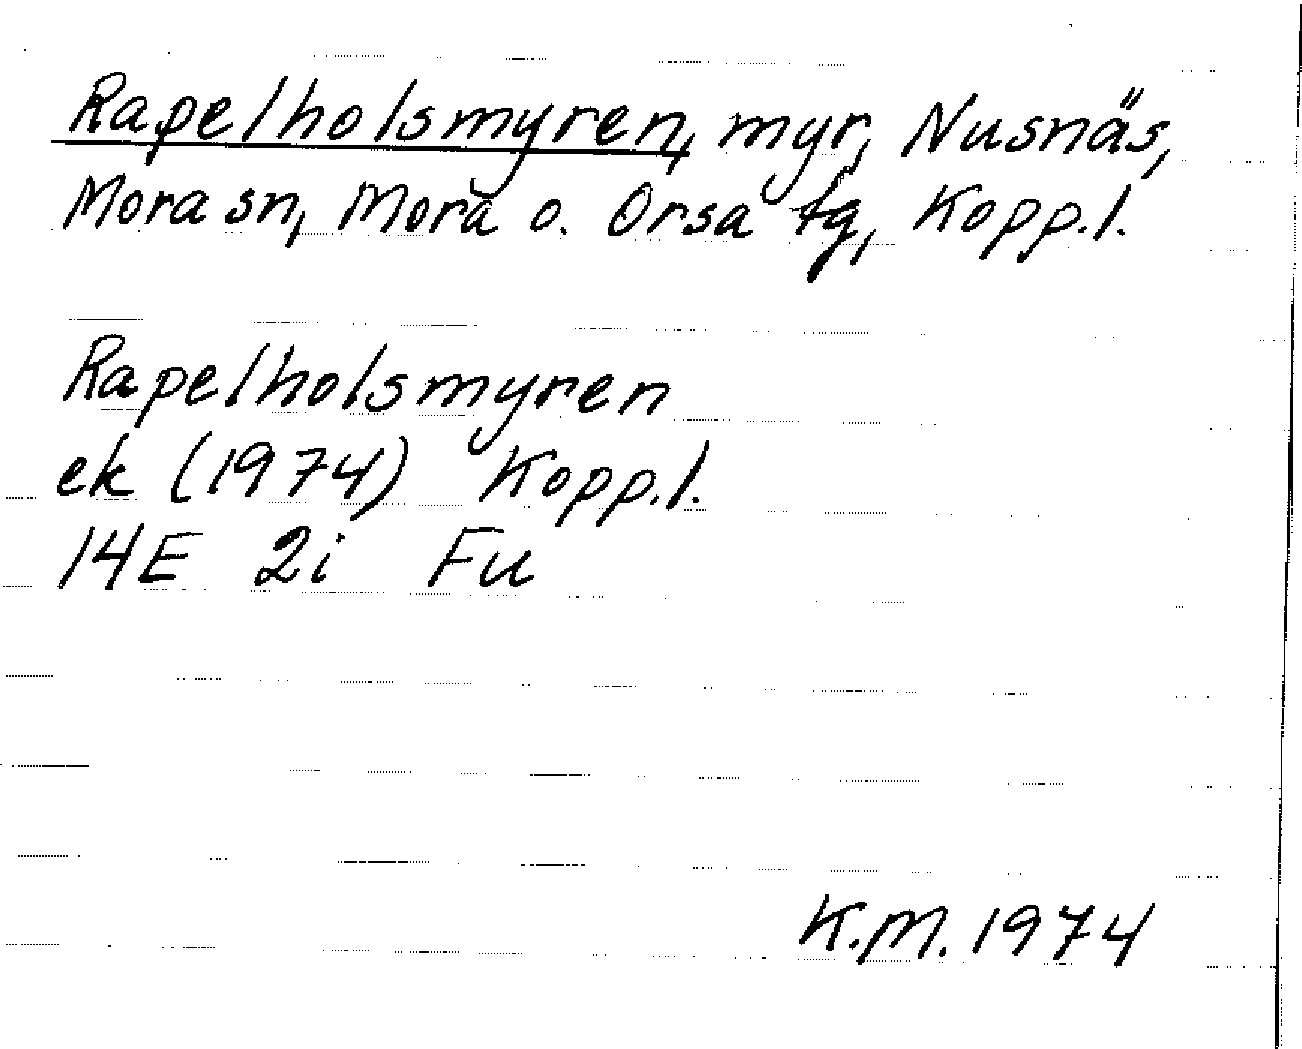 Rapelholsmyren, myr, Nusnäs,
Mora sn, Mora o. Orsa tg, Kopp.l.
Rapelholsmyren
ek (1974) Kopp.l.
14E 2i Fu
K.M. 1974